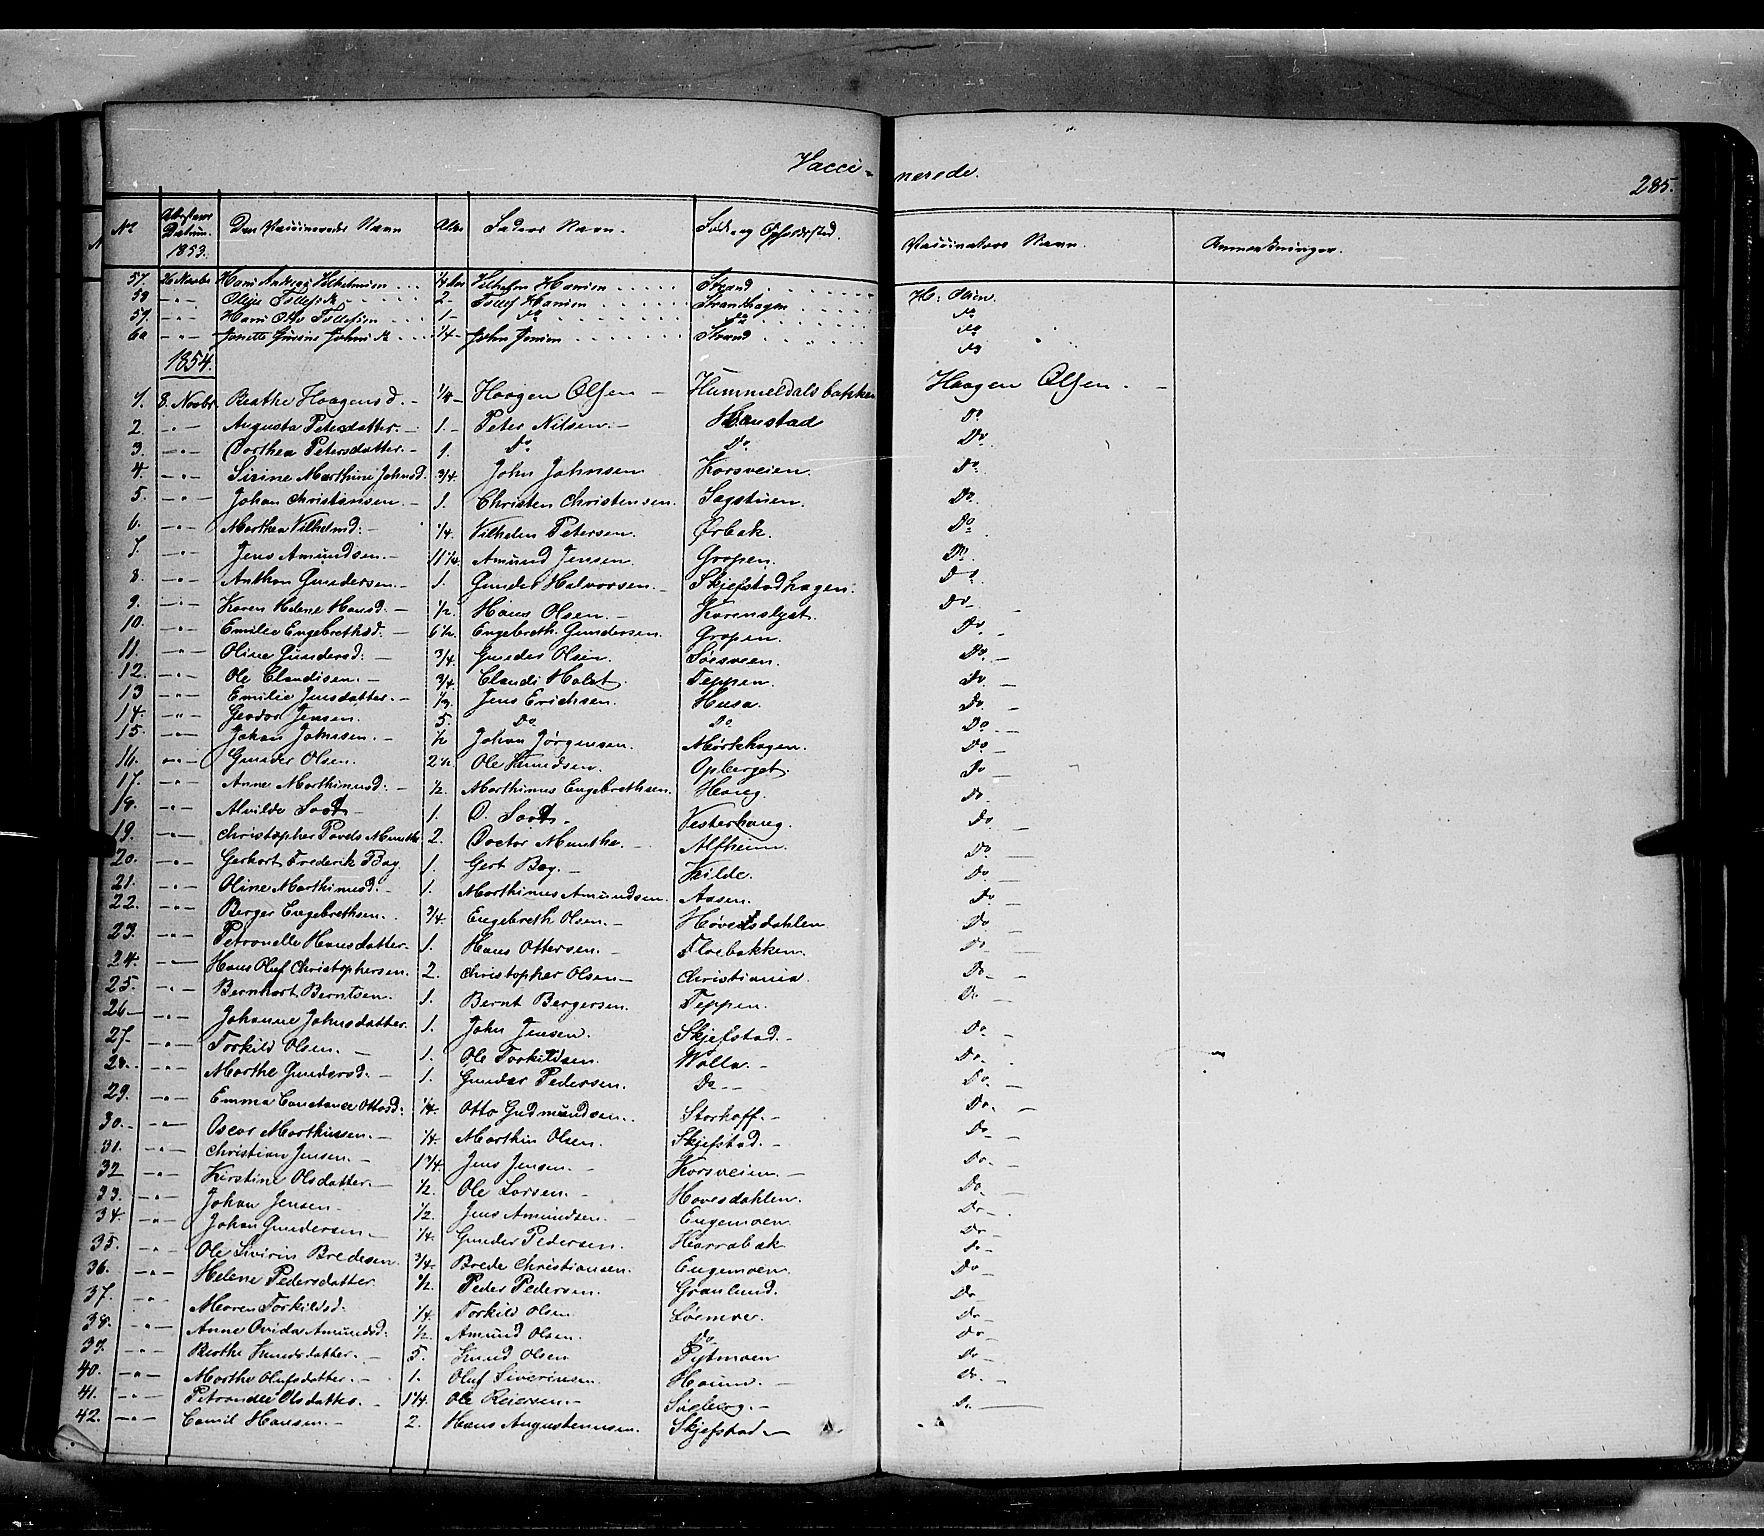 Vacci- nerede. 285.
No Attestens Datum. 1853. Den Vaccineredes Navn Alder Faders Navn. Føde og Opholdssted. Vaccinators Navn. Anmærkninger.
57. 26 Novbr Hans Andreas Vilhelmsen ... 1/4 Vilhelm Hansen .... Strand .... H. Olsen.
58 -"- Tollefsdr ... 2 - Tollef Hansen .... Strandhagen .... do
59. -"- Hans Tollefsen ... 1 - do .... do .... do
60 -"- Janette Gusine Johnsdr ... 1/4 - John Jensen .... Strand .... do
1854.
1. 8. Novbr. Berthe Haagensd. - 1/4 - Haagen Olsen - Hummeldalsbakken Haagen Olsen. -
2. -"- Augusta Petersdatter. - 1. - Peter Nilsen. - Hanstad Do
3. -"- Dorthea Petersdatter. - 1. Do Do Do
4. -"- Sirine Marthine Johnsd. 3/4. John Johnsen Korsveien. Do
5. -"- Johan Christensen. - 1. Christen Christensen. Sagstuen. Do
6. -"- Marthea Vilhelmd. - 1/4. Vilhelm Petersen. Ørbek. Do
7. -"- Jens Amundsen. - 11 1/4. Amund Jensen. Gropen. Do
8. -"- Anthon Gundersen. - 1. Gunder Halvorsen. - Skjefstadhagen. Do
9. -"- Karen Helene Hansd. - 1/2. Hans Olsen. - Karenslyst. Do -
10. -"- Emilie Engebrethsd. - 6 1/2. Engebreth Gundersen. Gropen. Do -
11. -"- Oline Gundersd. - 3/4. Gunder Olsen. Do -
12. -"- Ole Claudisen. - 3/4. Claudi Holst. Teppen. Do -
13 -"- Emilie Jensdatter. - 1/3. Jens Erichsen. Husa. Do -
14. -"- Jensen. 5. Do Do Do -
15. -"- Johan Johnsen. - 1/2 Johan Jørgensen. Mørkhagen. Do -
16. -"- Gunder Olsen. 2 1/2. Ole Knudsen. Opberget. Do
17. -"- Anne Marthinusd. - 1/2. Marthinus Engebrethsen. Haug. Do -
18. -"- Alvilde Soot - 1. O. Soot. Vesterhaug. Do -
19. -"- Christopher Munthe 2. Doctor Munthe. - Alfheim. Do -
20. -"- Gerhart Frederik Bay. 1. Gert Bay. - Kilde. Do -
21. -"- Oline Marthinusd. - 1. Marthinus Amundsen. Aasen. Do -
22. -"- Berger Engebrethsen. 3/4. Engebreth Olsen. - Høversdahlen. Do
23. -"- Petronelle Hansdatter. 1. Hans Ottersen. - Floebakken. Do -
24. -"- Hans Oluf Christophersen. 2. Christopher Olsen - Christiania. Do -
25. -"- Bernhart Berntsen. 1. Bernt Bergersen. Teppen. Do -
26 -"- Johanne Johnsdatter. 1. John Jensen. Skjefstad. - Do -
27. -"- Torkild Olsen. - 1. Ole Torkildsen. Wolla. - Do -
28. -"- Marthe Gundersd. - 1. Gunder Pedersen. Do - Do -
29. -"- Emma Constance Ottosd. 1/4. Otto Gudmundsen. Storhoff. - Do -
30. -"- Oscar Marthinsen. - 1/4. Marthin Olsen. Skjefstad. - Do
31. -"- Christian Jensen. - 1 3/4. Jens Jensen. - Korsveien. - Do -
32 -"- Kirstine Olsdatter. - 1/2. Ole Larsen. - Hovesdahlen. Do -
33. -"- Johan Jensen - 1/2. Jens Amundsen. - Engemoen. Do -
34. -"- Johan Gundersen. - 1/4. Gunder Pedersen. Harrabek Do -
35. -"- Ole Sivirin Bredesen. 3/4. Brede Christiansen. Engemoen. Do -
36. -"- Helene Pedersdatter 1/2. Peder Pedersen. Granlund. Do
37. -"- Maren Torkildsd. 1/4. Torkild Olsen Do -
38. -"- Anne Ovida Amundsd. 1/2. Amund Olsen. Do Do -
39. -"- Berthe Knudsdatter. - 5. Knud Olsen Pytmoen Do -
40. -"- Marthe Olufsdatter. - 1. Oluf Siverinsen. Do -
41. -"- Petronelle Olsdatter. 1 1/4. Ole Reiersen. - Do.
42. -"- Camil Hansen. - 2. Hans Augustinusen. Skjefstad. -